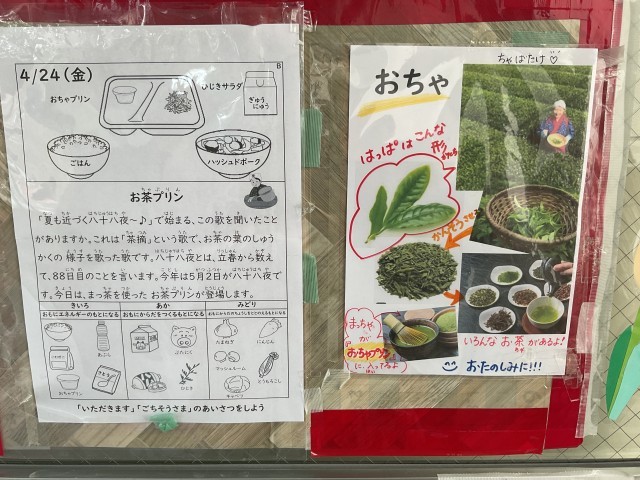 4/24(金)
B
おちゃプリン
ひじきサラダ
ぎゅう
にゅう
ごはん
ハッシュドポーク
お茶プリン
「夏も近づく八十八夜～♪」で始まる、この歌を聞いたこと
がありますか。これは「茶摘」という歌で、お茶の葉のしゅう
かくの様子を歌った歌です。八十八夜とは、立春から数え
て、88日目のことを言います。今年は5月2日が八十八夜で
す。今日は、まっ茶を使った お茶プリンが登場します。
きいろ
あか
みどり
おもにエネルギーのもとになる
おもにからだをつくるもとになる
おもにからだのちょうしをととのえるもとになる
あぶら
さとう
おちゃプリン
ぶたにく
ひじき
たまねぎ
にんじん
マッシュルーム
キャベツ
とうもろこし
「いただきます」「ごちそうさま」のあいさつをしよう
おちゃ
ちゃばたけ♡
はっぱはこんな
形
かんそうさせる
まっちゃ
が
おちゃプリン
に入ってるよ
いろんなお茶があるよ!
お・たのしみに!!!